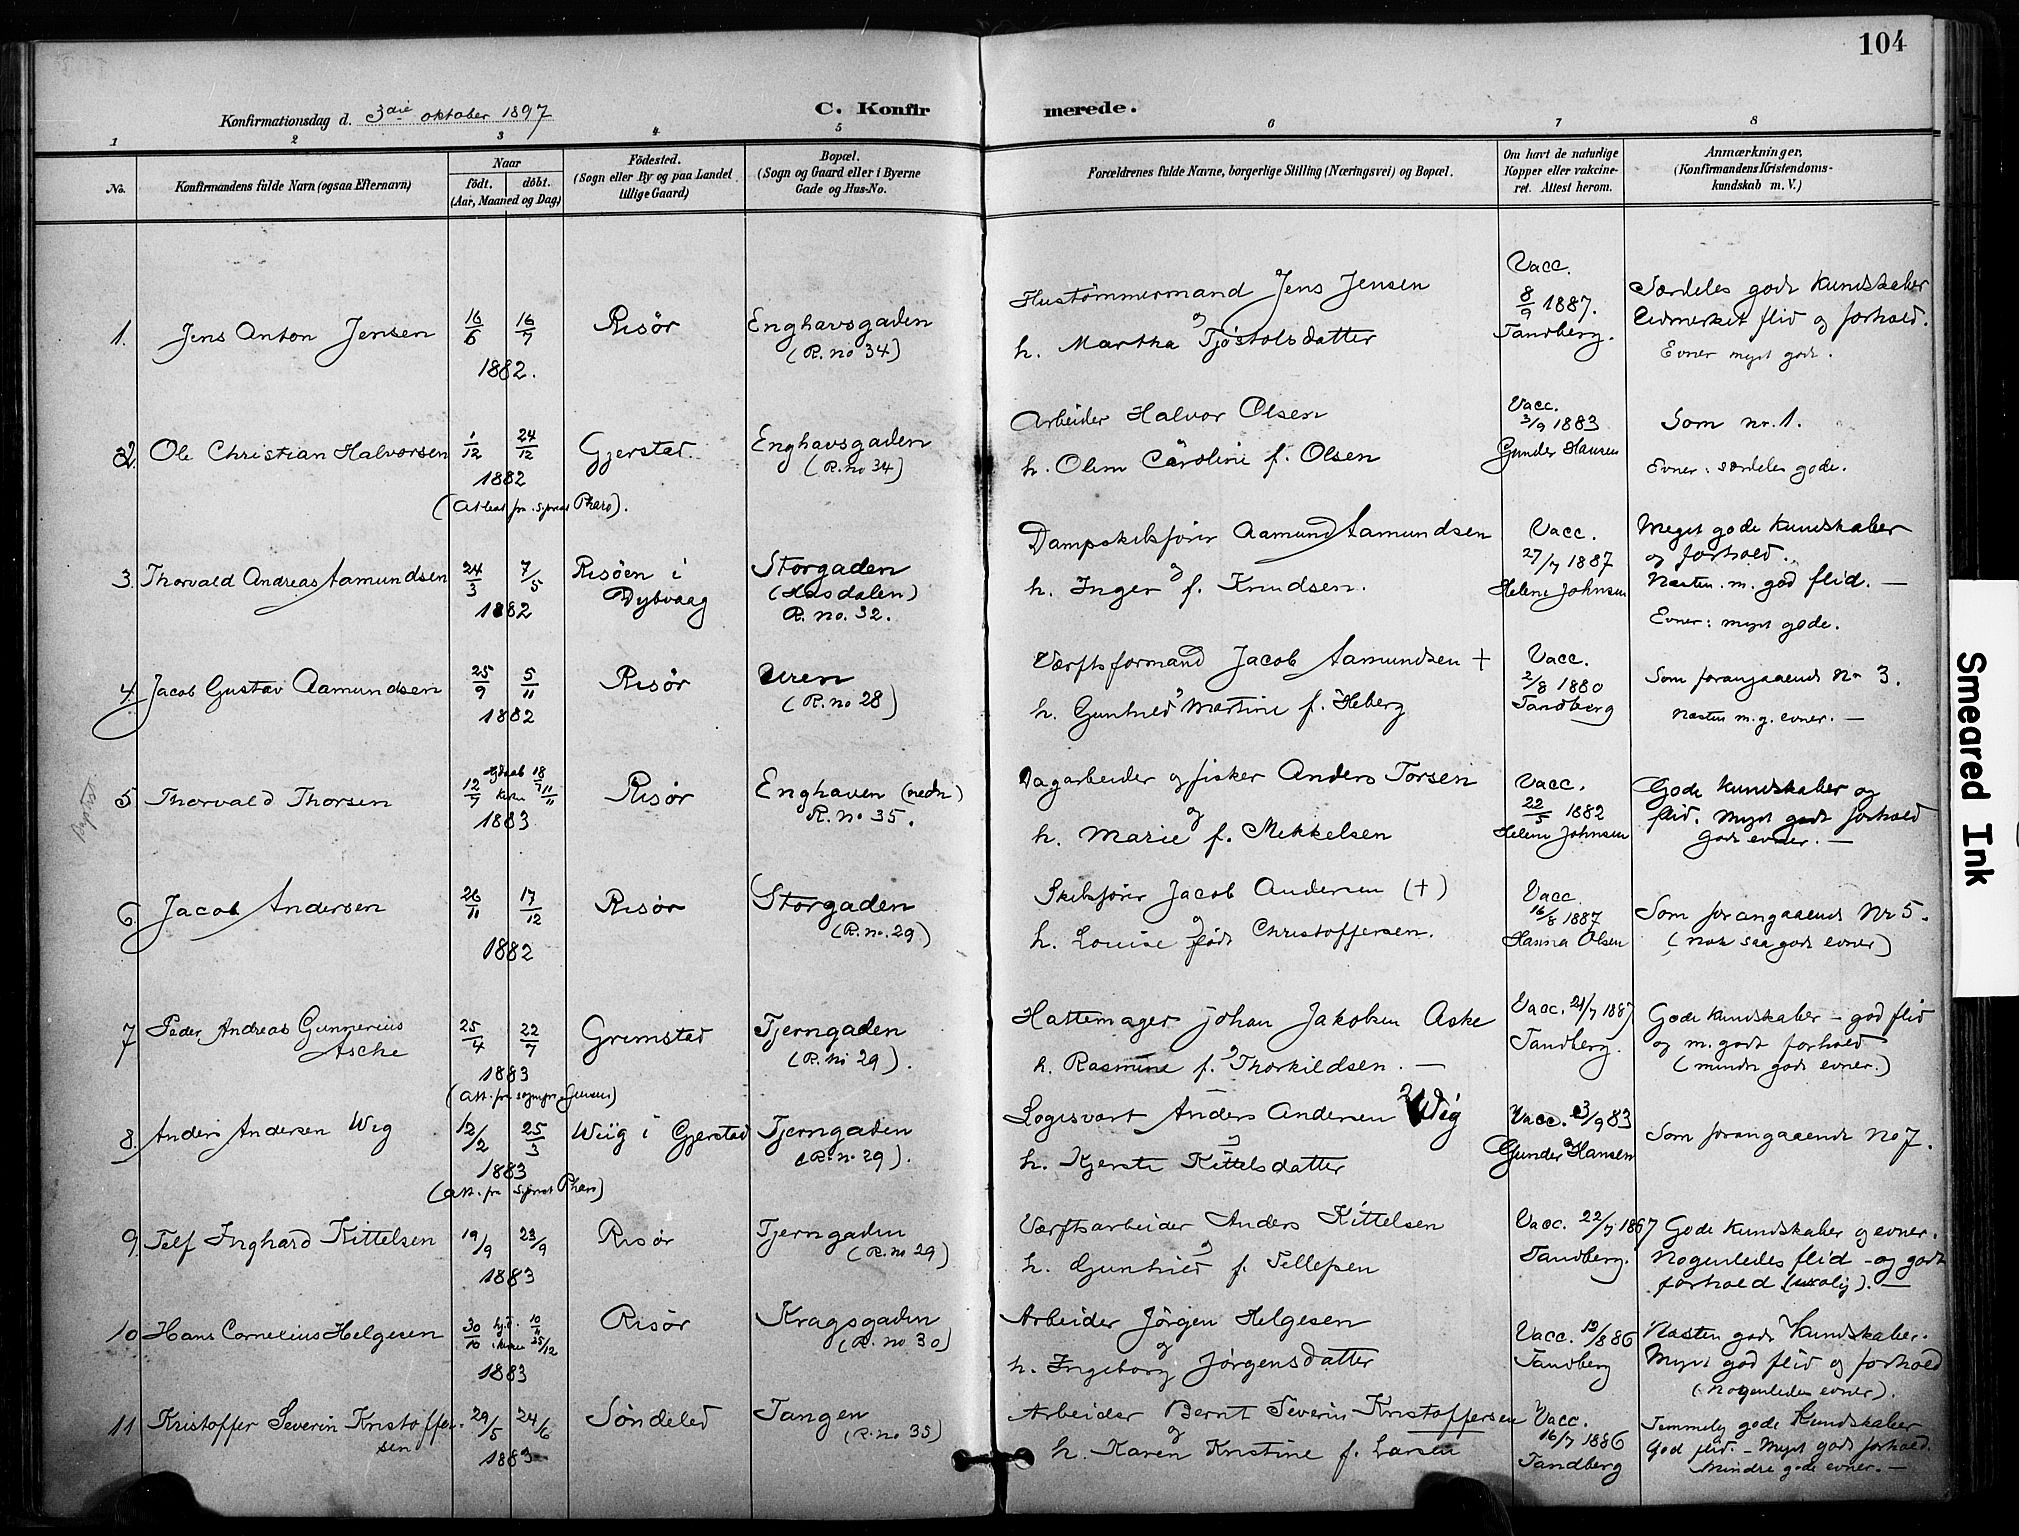 104
Konfirmationsdag d. 3die oktober 1897
C. Konfirmerede.
1 2 3 4 5 6 7 8
No.
Konfirmandens fulde Navn (ogsaa Efternavn)
Naar
født. døbt.
(Aar, Maaned og Dag)
Fødested.
(Sogn eller By og paa Landet
tillige Gaard)
Bopæl.
(Sogn og Gaard eller i Byerne
Gade og Hus-No.
Forældrenes fulde Navne, borgerlige Stilling (Næringsvei) og Bopæl.
Om havt de naturlige
Kopper eller vakcine-
ret. Attest herom.
Anmærkninger,
(Konfirmandens Kristendoms-
kundskab m. V.)
1. Jens Anton Jensen
16/6 16/7
1882.
Risør
Enghavsgaden
(R. no 34)
Hustømmermand Jens Jensen
og
h. Martha Tjöstolsdatter
Vacc.
8/9 1887.
Tandberg.
Særdeles gode kundskaber
Udmerket flid og forhold.
Evner myet gode.
2. Ole Christian Halvorsen
1/12 24/12
1882
(Attest fra Pharo).
Gjerstad
Enghavsgaden
(R. no 34)
Arbeider Halvor Olsen
h. Oline Caroline f. Olsen
Vacc.
3/9 1883
Gunder Hansen
Som nr. 1.
Evner: særdeles gode.
3. Thorvald Andreas Aamundsen
24/3 7/5
1882
Risöen i
Dybvaag
Storgaden
(Hasdalen)
R. no. 32.
Dampskibsfører Aamund Aamundsen
og
h. Inger f. Knudsen.
Vacc.
27/7 1887
Helene Johnsen
Meget gode kundskaber
og forhold.
Næsten m. god flid. —
Evner: myet gode.
4. Jacob Gustav Aamundsen
25/9 5/11
1882
Risør
Uren
(R. no 28)
Værftsformand Jacob Aamundsen +
h. Gunhild Martine f. Heberg
Vacc.
2/8 1880
Tandberg
Som forangaaende No 3.
Næsten m. g. evner. —
Baptist
5 Thorvald Thorsen
12/7 18/7 11/11
1883
Risør
Enghaven (nedr)
R. no 35.
Dagarbeider og fisker Anders Torsen
og
h. Marie f. Mekkelsen
Vacc.
22/5 1882
Helene Johnsen
Gode kundskaber og
flid. Myet godt forhold
Gode evner. —
6. Jacob Andersen
26/11 17/12
1882
Risør
Storgaden
(R. no. 29)
Skibsfører Jacob Andersen (+)
og
h. Louise født Christoffersen.
Vacc.
16/8 1887
Hanna Olsen
Som forangaaende Nr 5.
(Nok saa gode evner)
7 Peder Andreas Gunnerius
Asche
25/4 22/7
1883
Grimstad
Tjerngaden
(R. no 29).
Hattemager Johan Jakobsen Aske
og
h. Rasmine f. Thorkildsen. —
Vacc. 21/7 1887
Tandberg.
Gode kundskaber – god flid
og m. godt forhold
(mindre gode evner.)
8. Anders Andersen Wig
12/2 25/3
1883
(Att. fra Pharo)
Wiig i Gjerstad
Tjerngaden
(R. no 29).
Logisvært Anders Andersen Wig
og
h. Kjersti Kittelsdatter
Vacc. 3/9 83
Gunder Hansen
Som forangaaende No 7.
9. Telf Inghard Kittelsen
19/9 23/9
1883
Risør
Tjerngaden
(R. no 29)
Værftsarbeider Anders Kittelsen
og
h. Gunhild f. Tellefsen
Vacc. 22/7 1867
Tandberg.
Gode kundskaber og evner.
Nogenledes flid – og godt
forhold (urolig). —
10 Hans Cornelius Helgesen
30/10 hjd. 10/11 i kirken 25/12
1883
Risør
Kragsgaden
(R. no 30)
Arbeider Jörgen Helgesen
og
h. Ingeborg Jørgensdatter
Vacc. 19/8 86
Tandberg
Næsten gode Kundskaber.
Myet god flid og forhold
(Nogenledes evner).
11 Kristoffer Severin Kristoffer-
sen
29/5 24/6
1883
Söndeled
Tangen
(R. no 35)
Arbeider Bernt Severin Kristoffersen
og
h. Karen Kristine f. Larsen
Vacc.
16/7 1886
Tandberg
Temmelig gode Kundskaber
God flid – Myet godt forhold.
Mindre gode evner. —
Smeared Ink